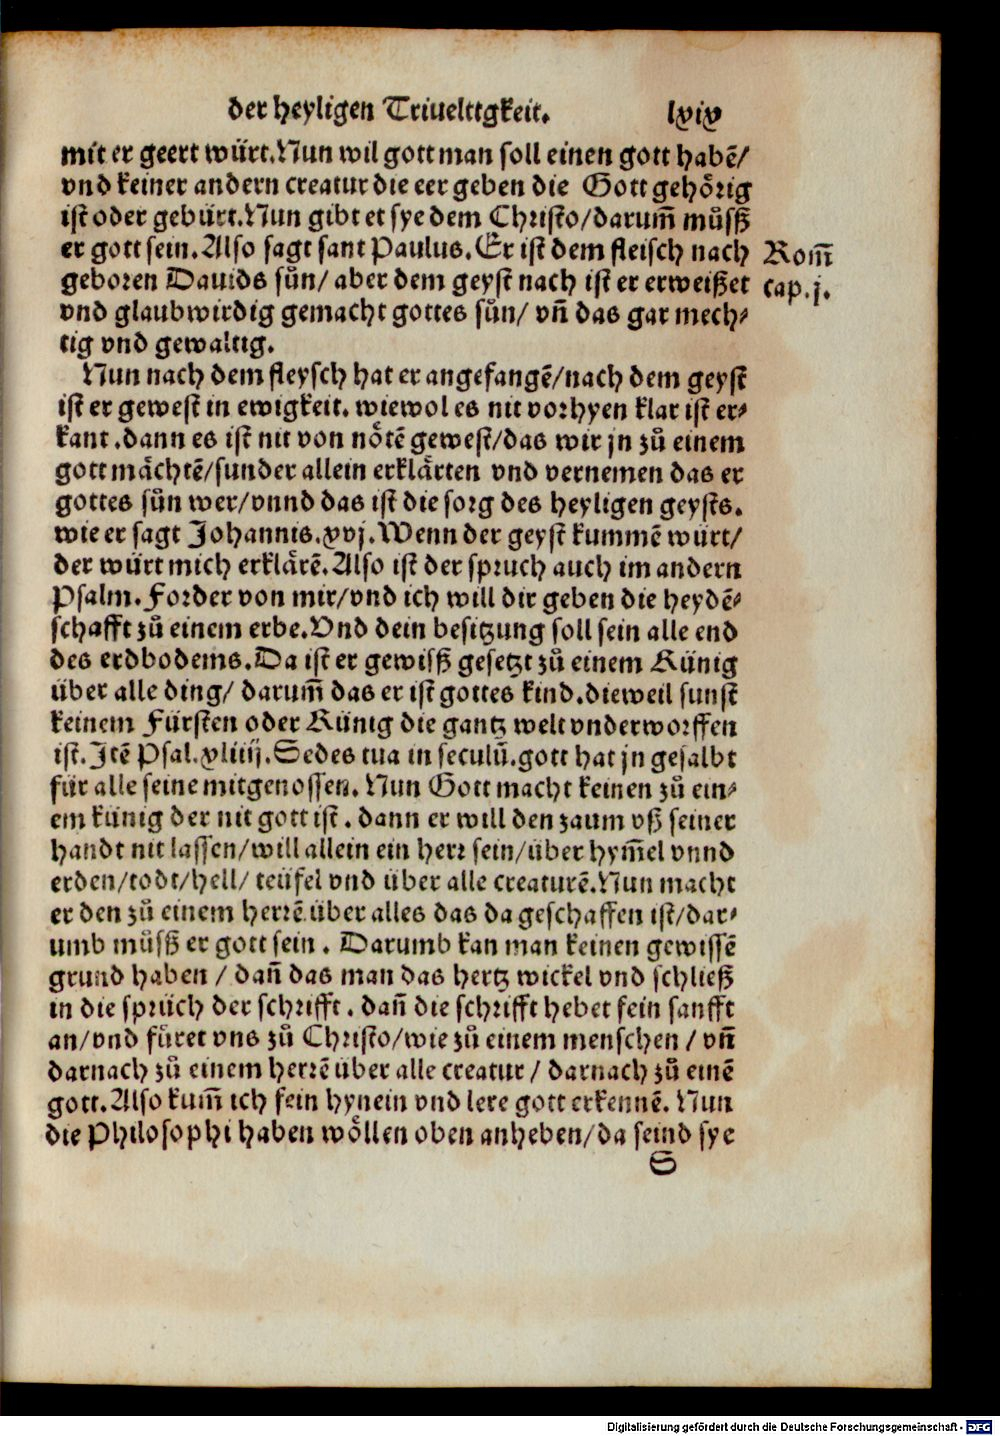 der heyligen Triueltigkeit. lxix
mit er geert würt. Nun wil gott man soll einen gott habē/
vnd keiner andern creatur die eer geben die Gott gehörig
ist oder gebürt. Nun gibt et sye dem Christo/ darum̄ můſſz
er gott sein. Also sagt sant Paulus. Er ist dem fleisch nach
Rom̄
geboren Dauids sůn/ aber dem geyst nach ist er erweißet
cap. j.
vnd glaubwirdig gemacht gottes sůn/ vn̄ das gar mech⸗
tig vnd gewaltig.
Nun nach dem fleysch hat er angefangē/ nach dem geyst
ist er gewest in ewigkeit. wiewol es nit vorhyen klar ist er⸗
kant. dann es ist nit von nötē gewest/ das wir jn zů einem
gott mächtē/ sunder allein erklärten vnd vernemen das er
gottes sůn wer/ vnnd das ist die sorg des heyligen geysts.
wie er sagt Johannis. xvj. Wenn der geyst kummē würt/
der würt mich erklärē. Also ist der spruch auch im andern
Psalm. Forder von mir/ vnd ich will dir geben die heydē⸗
schafft zů einem erbe. Vnd dein besitzung soll sein alle end
des erdbodems. Da ist er gewiſſz gesetzt zů einem Künig
über alle ding/ darum̄ das er ist gottes kind. dieweil sunst
keinem Fürsten oder Künig die gantz welt vnderworffen
ist. Itē Psal. xliiij. Sedes tua in seculū. gott hat jn gesalbt
für alle seine mitgenossen. Nun Gott macht keinen zů ein⸗
em künig der nit gott ist. dann er will den zaum vß seiner
handt nit lassen/ will allein ein herr sein/ über hym̄el vnnd
erden/ todt/ hell/ teüfel vnd über alle creaturē. Nun macht
er den zů einem herrē über alles das da geschaffen ist/ dar⸗
umb můſſz er gott sein. Darumb kan man keinen gewissē
grund haben / dan̄ das man das hertz wickel vnd schließ
in die sprüch der schrifft. dan̄ die schrifft hebet fein sanfft
an/ vnd füret vns zů Christo/ wie zů einem menschen / vn̄
darnach zů einem herrē über alle creatur / darnach zů einē
gott. Also kum̄ ich fein hynein vnd lere gott erkennē. Nun
die Philosophi haben wöllen oben anheben/ da seind sye
S
Digitalisierung gefördert durch die Deutsche Forschungsgemeinschaft - DFG